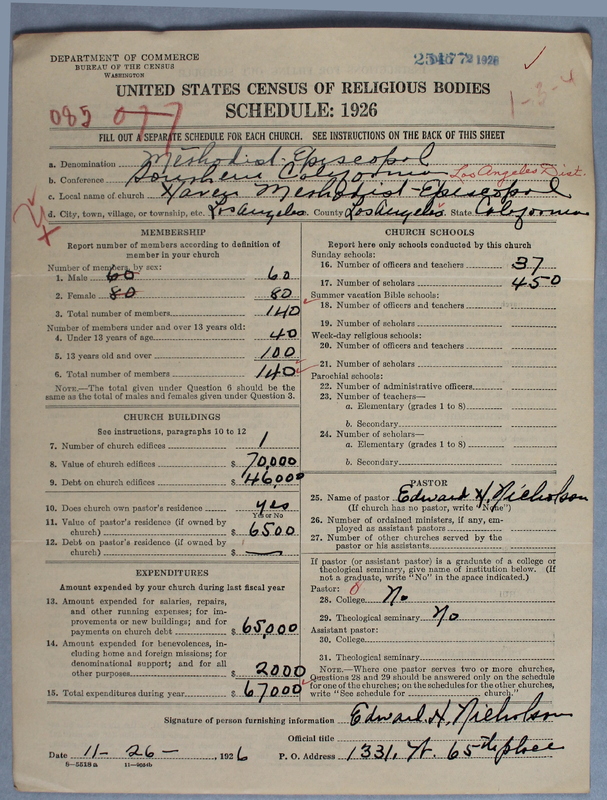 DEPARTMENT OF COMMERCE
BUREAU OF THE CENSUS
WASHINGTON
1926
UNITED STATES CENSUS OF RELIGIOUS BODIES
SCHEDULE: 1926
085 077
1-3-4
FILL OUT A SEPARATE SCHEDULE FOR EACH CHURCH. SEE INSTRUCTIONS ON THE BACK OF THIS SHEET
a. Denomination Methodist Episcopal
b. Conference Southern California Los Angeles Dist.
c. Local name of church Haven Methodist-Episcopal
d. City, town, village, or township, etc. Los Angeles County Los Angeles State California
MEMBERSHIP
Report number of members according to definition of
member in your church
Number of members, by sex:
1. Male 60 60
2. Female 80 80
3. Total number of members 140
Number of members under and over 13 years old:
4. Under 13 years of age 40
5. 13 years old and over 100
6. Total number of members 140
NOTE.—The total given under Question 6 should be
same as the total of males and females given under Question 3.
CHURCH BUILDINGS
See instructions, paragraphs 10 to 12
7. Number of church edifices 1
8. Value of church edifices $ 70,000
9. Debt on church edifices $ 46,000
10. Does church own pastor's residence yes
Yes or No
11. Value of pastor's residence (if owned by
church) $ 6500
12. Debt on pastor's residence (if owned by
church) $ —
EXPENDITURES
Amount expended by your church during last fiscal year
13. Amount expended for salaries, repairs,
and other running expenses; for im-
provements or new buildings; and for
payments on church debt $ 65,000
14. Amount expended for benevolences, in-
cluding home and foreign missions; for
denominational support; and for all
other purposes $ 2000
15. Total expenditures during year $ 67000
CHURCH SCHOOLS
Report here only schools conducted by this church
Sunday schools:
16. Number of officers and teachers 37
17. Number of scholars 450
Summer vacation Bible schools:
18. Number of officers and teachers
19. Number of scholars
Week-day religious schools:
20. Number of officers and teachers
21. Number of scholars
Parochial schools:
22. Number of administrative officers
23. Number of teachers—
a. Elementary (grades 1 to 8)
b. Secondary
24. Number of scholars—
a. Elementary (grades 1 to 8)
b. Secondary
PASTOR
25. Name of pastor Edward H. Nicholson
(If church has no pastor, write "None")
26. Number of ordained ministers, if any, em-
ployed as assistant pastors
27. Number of other churches served by the
pastor or his assistants
If pastor (or assistant pastor) is a graduate of a college or
theological seminary, give name of institution below. (If
not a graduate, write "No" in the space indicated.)
Pastor: 0
28. College No
29. Theological seminary No
Assistant pastor:
30. College
31. Theological seminary
NOTE.—Where one pastor serves two or more churches,
Questions 28 and 29 should be answered only on the schedule
for one of the churches; on the schedules for the other churches,
write "See schedule for church."
Signature of person furnishing information Edward H. Nicholson
Official title
Date 11-26-, 1926 P. O. Address 1331, W. 65th place
8-5518a 11-9034b